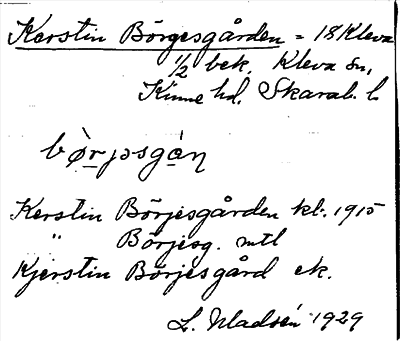 Kerstin Börgesgården = 18 Kleva
1/2 bek. Kleva sn,
Kinne hd. Skarab. l.
bø̀rjɔsgàn
Kerstin Börjesgården kb. 1915
" Börjesg. mtl
Kjerstin Börjesgård ek.
L. Uladsén 1929